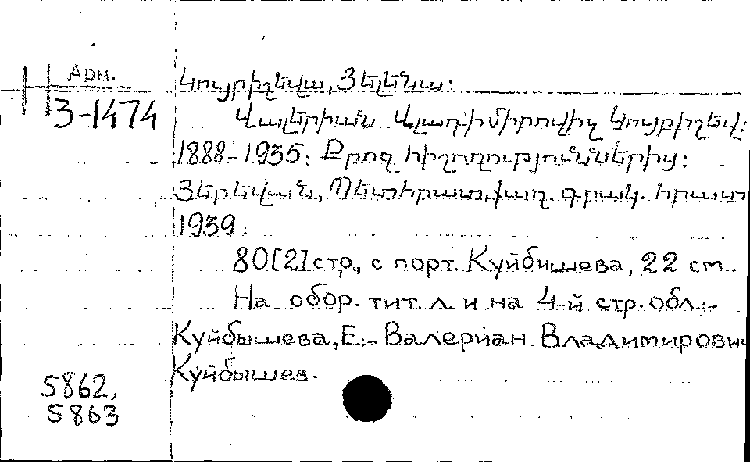 Арм.
3-1474
Կույբիշեվա, Յելենա:
Վալերիան Վլադիմիրովիչ Կույբիշեվ:
1888-1935: Քրոջ հիշողություններից:
Յերեվան, Պետհրատ, քաղ. գրակ. հրատ
1939.
80[2] стр., с порт. Куйбышева, 22 см.
На обор. тит. л. и на 4-й стр. обл.:-
Куйбышева, Е.- Валериан Владимирови
Куйбышев.
5862,
5863